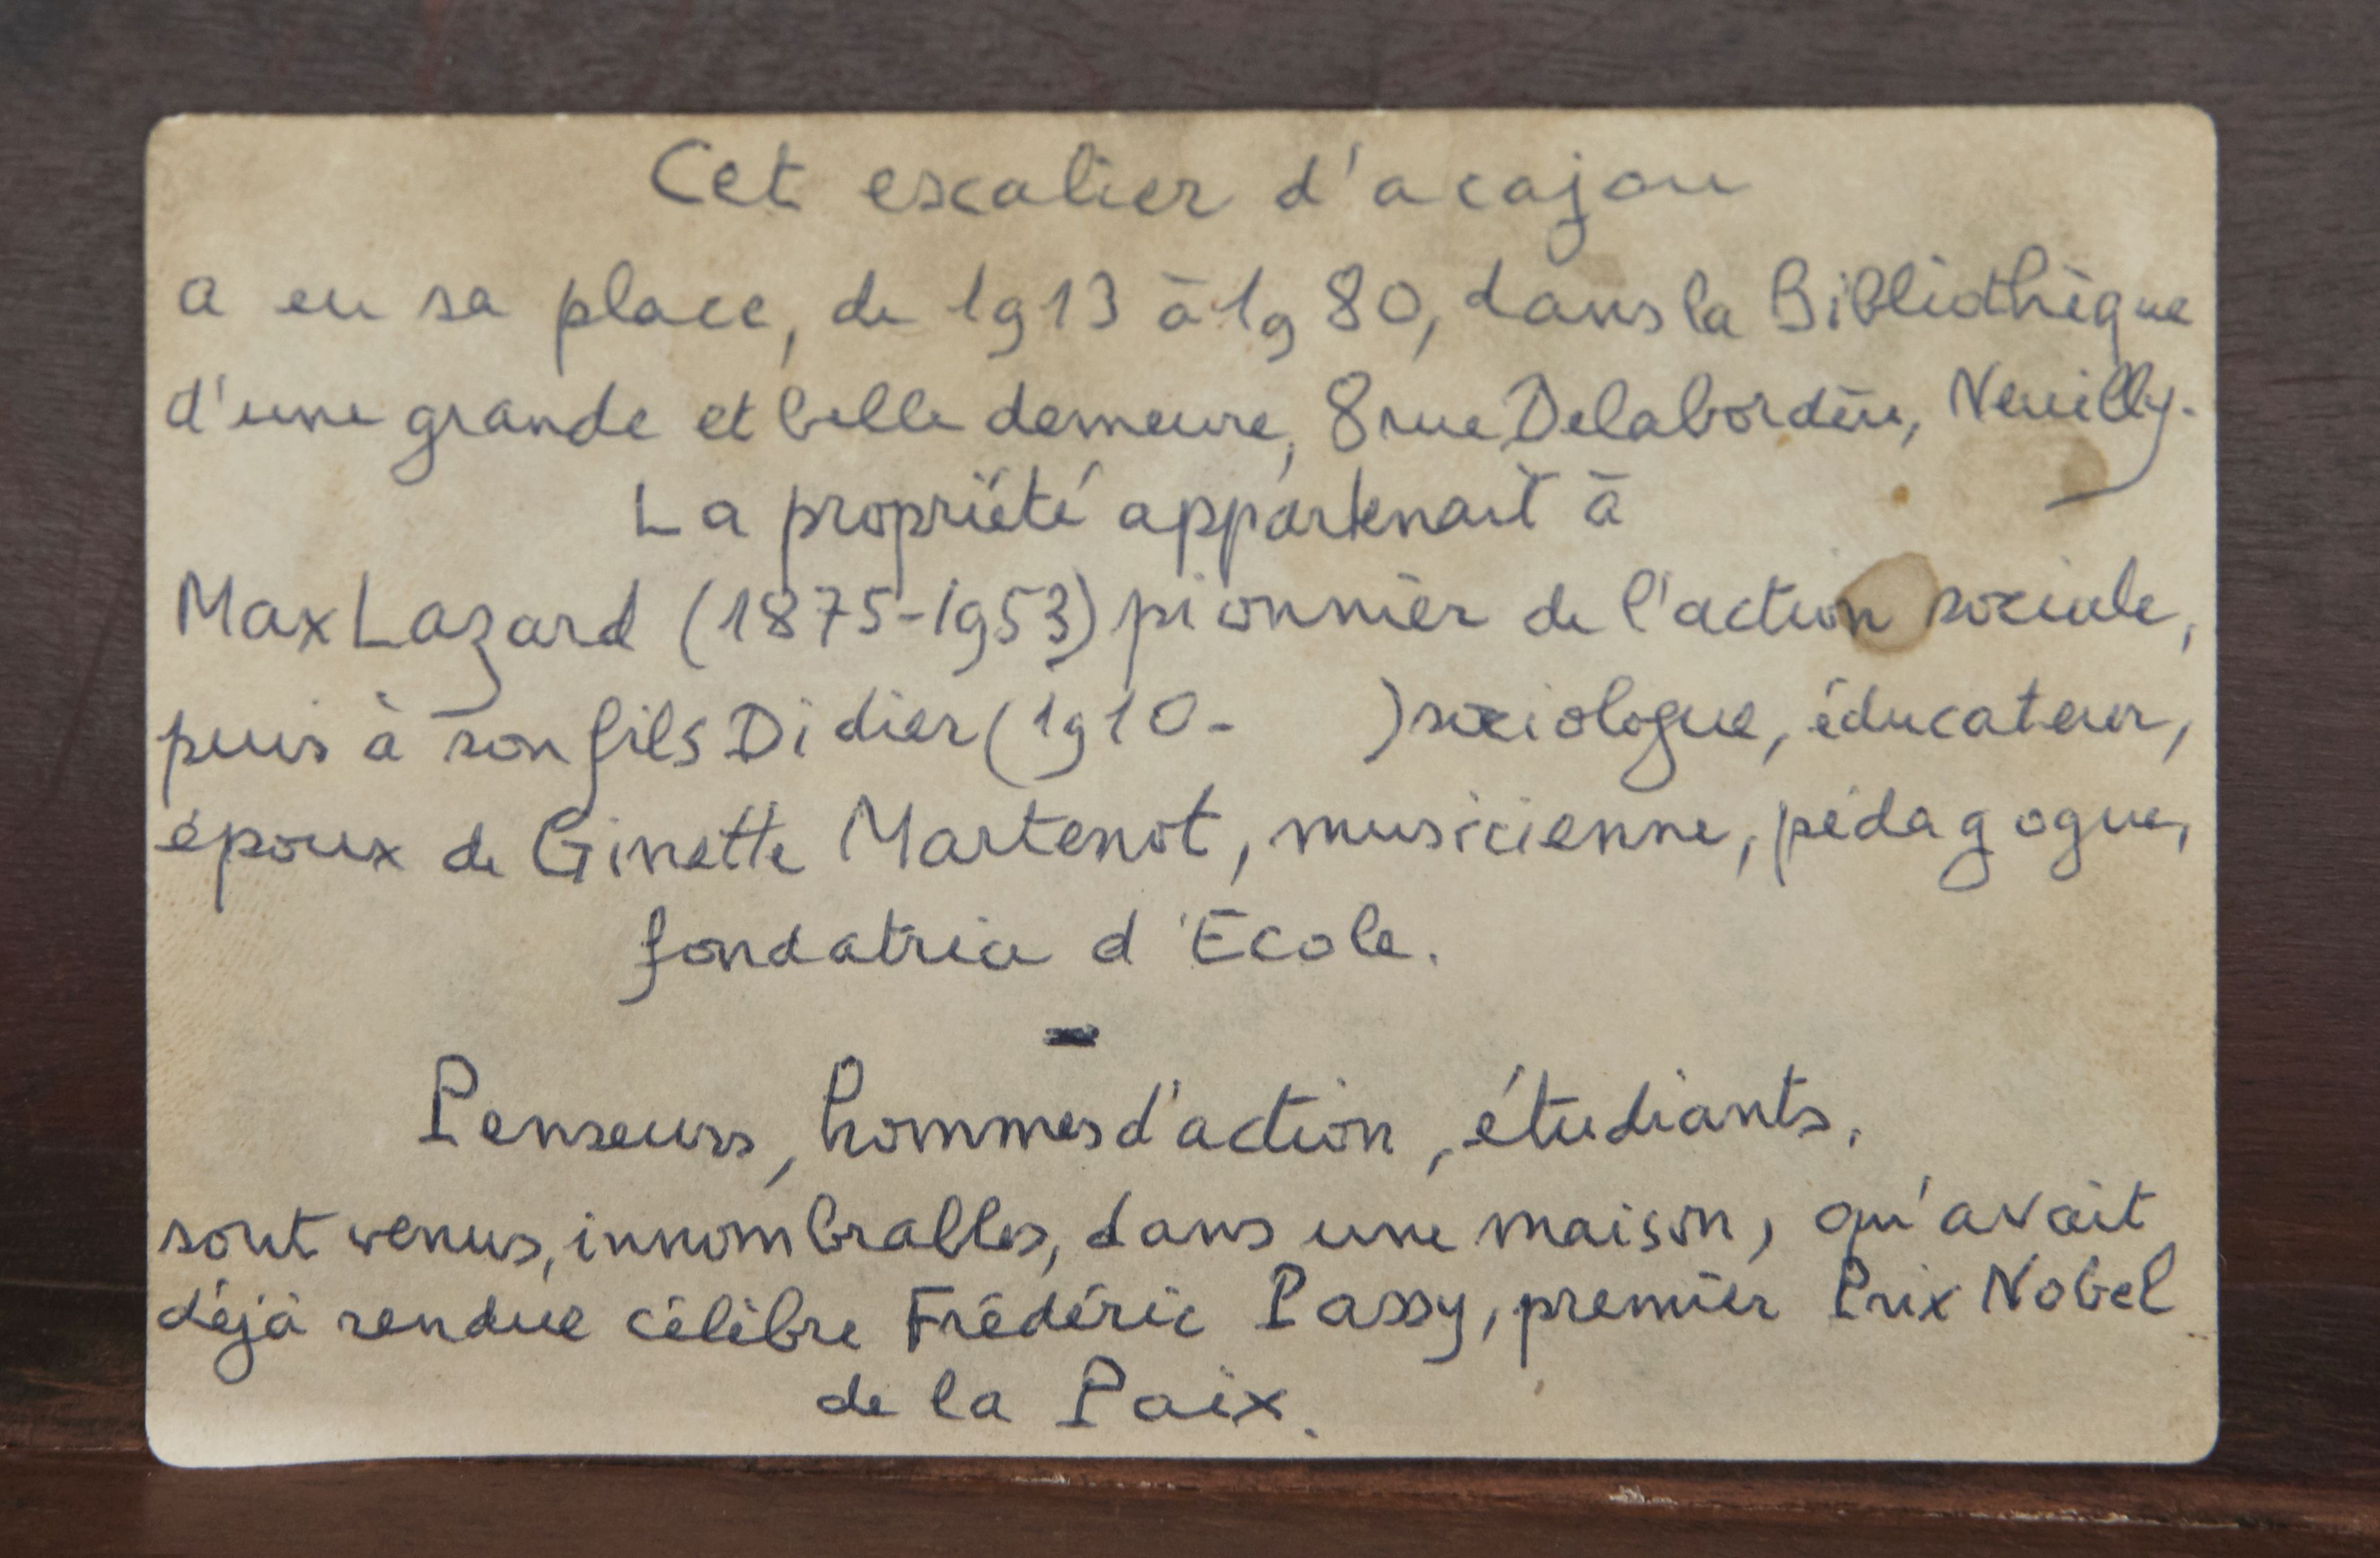 Cet escalier d'acajou
a eu sa place, de 1913 à 1980, dans la Bibliothèque
d'une grande et belle demeure, 8 rue Delabordère, Neuilly.
La propriété appartenait à
Max Lazard (1875-1953) pionnier de l'action sociale,
puis à son fils Didier (1910- ) sociologue, éducateur,
époux de Ginette Martenot, musicienne, pédagogue,
fondatrice d'Ecole.
-
Penseurs, hommes d'action, étudiants,
sont venus, innombrables, dans une maison, qu'avait
déjà rendue célèbre Frédéric Passy, premier Prix Nobel
de la Paix.